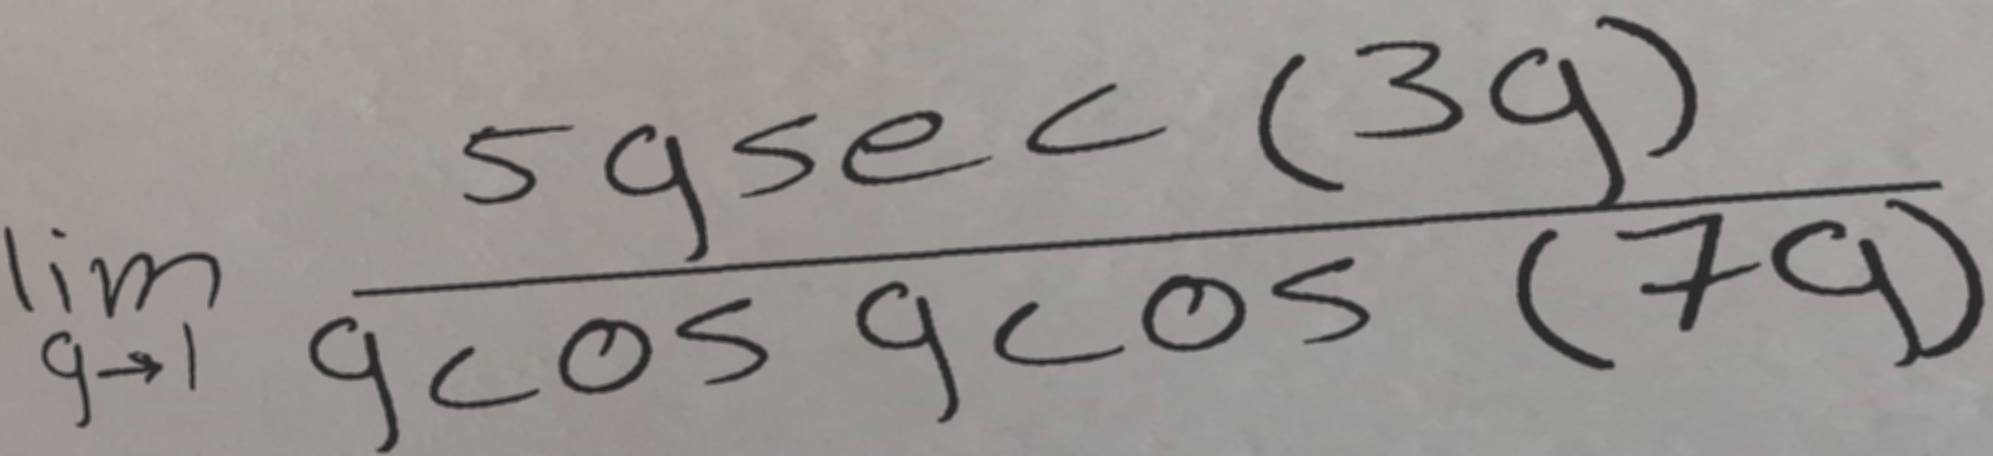 lim q→1 5qsec(3q) / qcosqcos(7q)